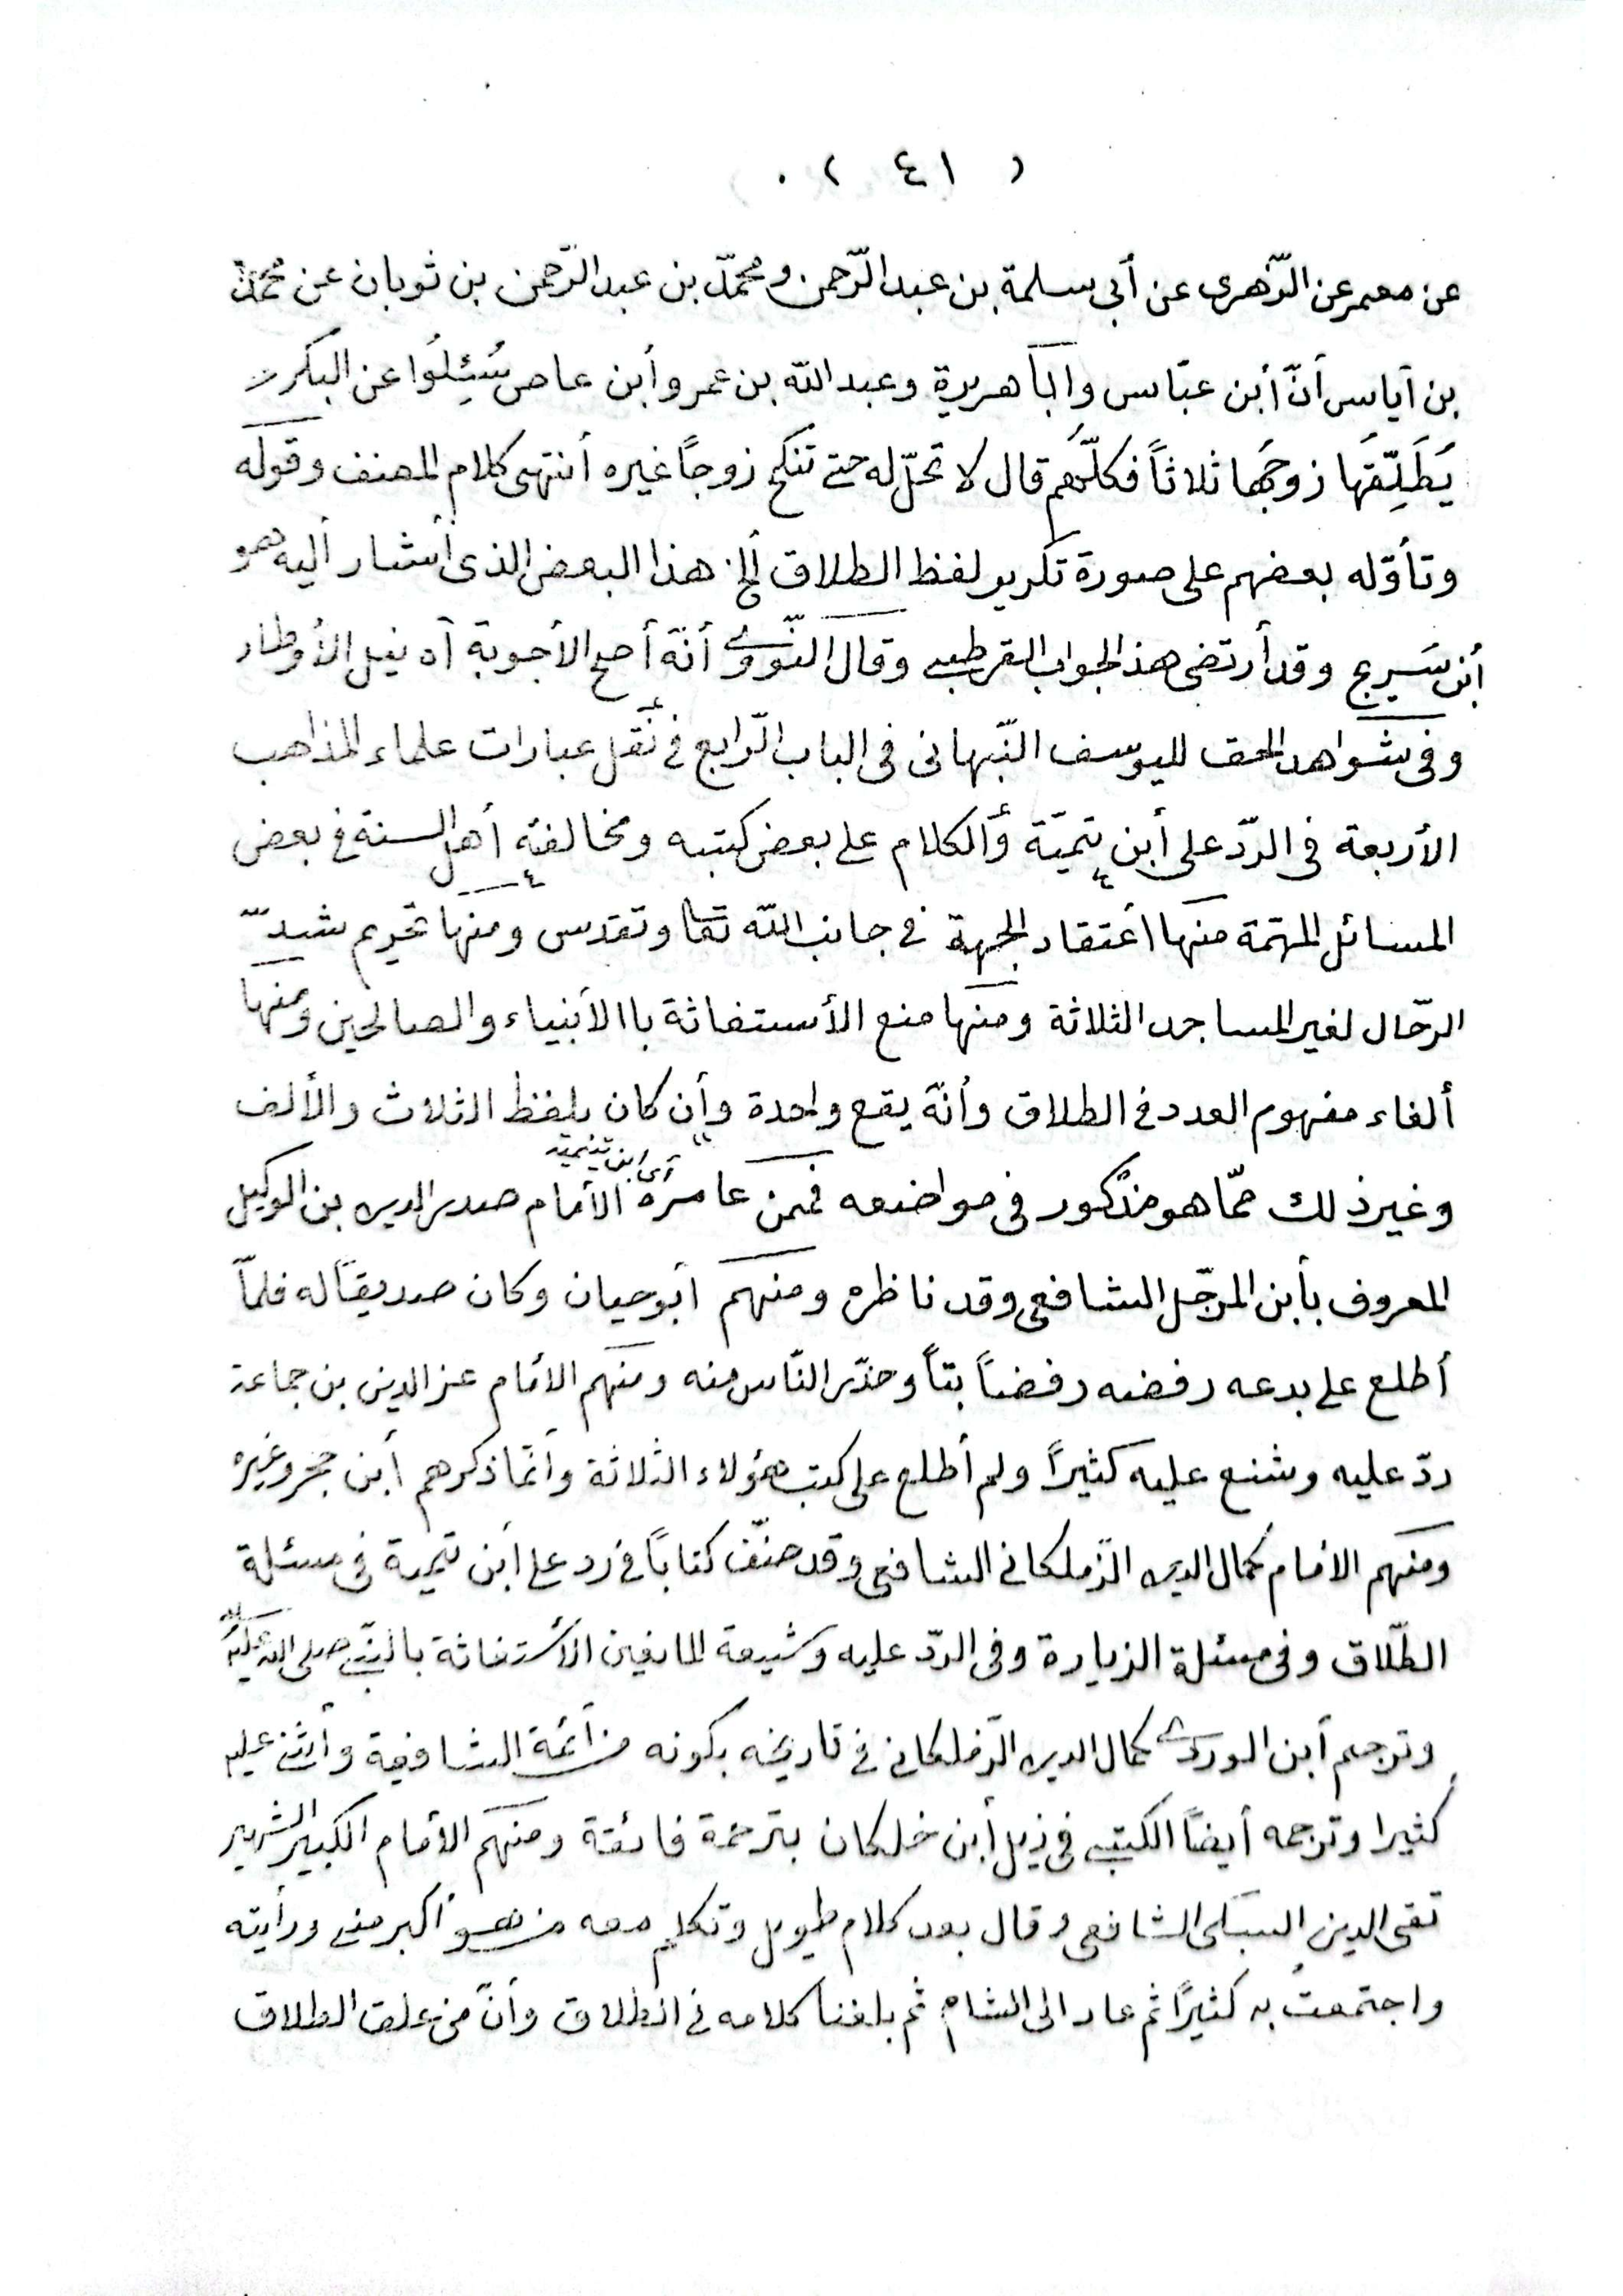 ( ٤١ ) .
عن معمر عن الزّهرى عن أبى سلمة بن عبد الرّحمن ومحمّد بن عبد الرّحمن بن ثوبان عن محمّد
بن أياس أنّ أبن عبّاس وأباَ هريرة وعبد الله بن عمرو أبن عاص سُئِلُوا عن البكر
يُطَلِّقُهَا زوجُهَا ثلاثاً فكلّهُم قال لا تحلّ له حتى تنكح زوجاً غيره أنتهى كلام المصنف وقوله
وتأوّله بعضهم على صورة تكرير لفظ الطلاق ألخ هذا البعض الذى أشار أليه هو
أبن سَريج وقد أرتضى هذ الجواب القرطبى وقال النّووى أنّه أصح الأجوبة أه نيل الأوطار
وفى شواهد الحق لليوسف النّبهانى فى الباب الرّابع فى نقل عبارات علماء المذاهب
الأربعة فى الردّ على أبن تيميّة وألكلام على بعض كتبه ومخالفته أهل السنة فى بعض
المسائل المهمّة منها أعتقاد الجهة فى جانب الله تعا وتقدس ومنها تحريم شدّ
الرحّال لغير المساجد الثلاثة ومنها منع الأستغاثة باالأنبياء والصالحين ومنها
ألغاء مفهوم العدد فى الطلاق وأنّه يقع واحدة وأن كان بلفظ الثلاث والألف
وغير ذلك ممّا هو مذكور فى مواضعه فممن عاصره أى ابن تيمية الأمام صدر الدين بن الوكيل
المعروف بأبن المرحّل الشافعى وقد ناظره ومنهم أبو حيان وكان صديقاً له فلمّا
أطلع على بدعه رفضه رفضاً بتاً وحذّر النّاس منه ومنهم الأمام عز الدين بن جماعة
ردّ عليه وشنع عليه كثيراً ولم أطلع على كتب هؤلاء الثلاثة وأنّما ذكرهم أبن حجر وغيره
ومنهم الامام كمال الدين الزّملكانى الشافعى وقد صنّف كتاباً فى رد على أبن تيمية فى مسئلة
الطّلاق وفى مسئلة الزيارة وفى الردّ عليه وشيعة المانعين الأستغاثة بالنبّى صلى الله عليه
وترجم أبن الوردى كمال الدين الزّملكانى فى تاريخه بكونه من أئمّة الشافعية وأثنى عليه
كثيرا وترجمه أيضاً الكتبى فى ذيل أبن خلكان بترجمة فائقة ومنهم الأمام الكبير الشهير
تقى الدين السبكى الشافعى وقال بعد كلام طويل وتكلم معه من هو أكبر منى ورأيته
واجتمعتُ به كثيراً ثم عاد الى الشام ثم بلغنا كلامه فى الطلاق وأنّ من علق الطلاق